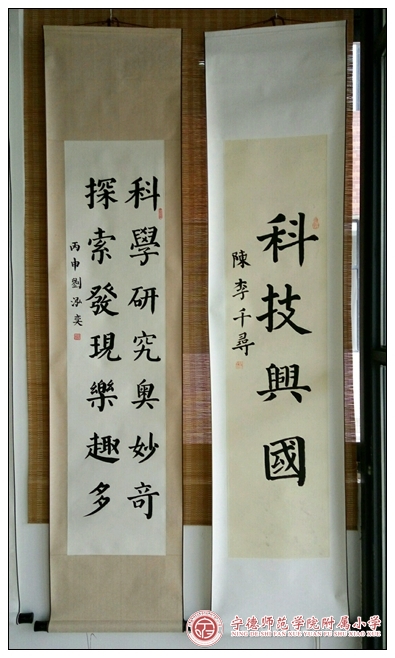 科技興國
陳李千尋
科學研究奧妙奇
探索發現樂趣多
丙申劉奕
宁德师范学院附属小学
NING DE SHI FAN XUE YUAN FU SHU XIAO XUE